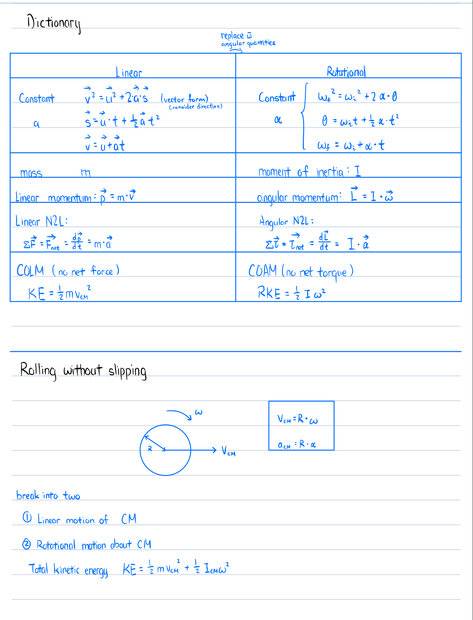 Dictionary
replace w
angular quantities
Linear
Rotational
Constant
a
v² = u² + 2a·s (vector form)
(consider direction)
s = u·t + ½at²
v = u + at
Constant
α
ω_f² = ω_i² + 2α·θ
θ = ω_i t + ½α·t²
ω_f = ω_i + α·t
mass m
moment of inertia: I
Linear momentum: p = m·v
angular momentum: L = I·ω
Linear N2L:
ΣF = F_net = dp/dt = m·a
Angular N2L:
Στ = τ_net = dL/dt = I·α
COLM (no net force)
COAM (no net torque)
KE = ½mv_CM²
RKE = ½Iω²
Rolling without slipping
ω
R
V_CM
V_CM = R·ω
a_CM = R·α
break into two
① Linear motion of CM
② Rotational motion about CM
Total kinetic energy KE = ½mv_CM² + ½I_CMω²